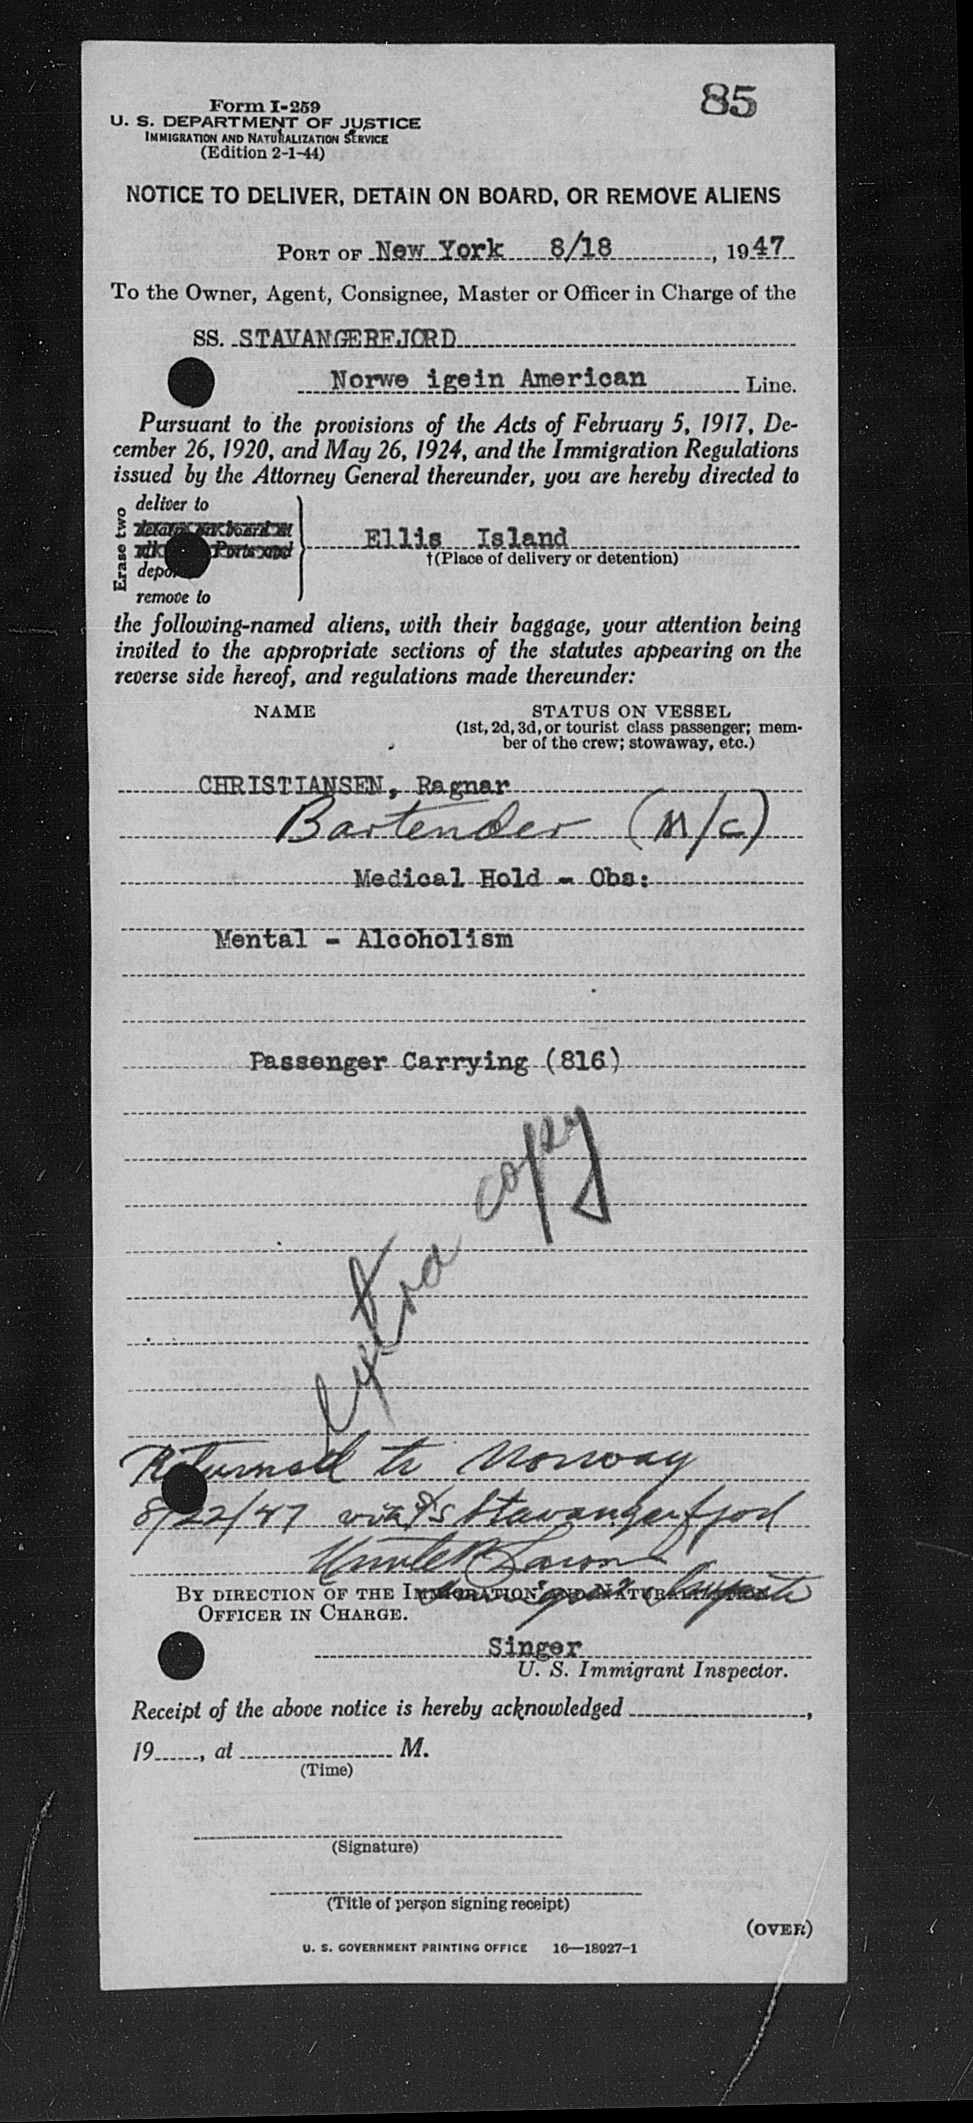 85
Form I-259
U. S. DEPARTMENT OF JUSTICE
IMMIGRATION AND NATURALIZATION SERVICE
(Edition 2-1-44)
NOTICE TO DELIVER, DETAIN ON BOARD, OR REMOVE ALIENS
PORT OF New York 8/18, 1947
To the Owner, Agent, Consignee, Master or Officer in Charge of the
SS. STAVANGERFJORD
Norwe igein American Line.
Pursuant to the provisions of the Acts of February 5, 1917, De-
cember 26, 1920, and May 26, 1924, and the Immigration Regulations
issued by the Attorney General thereunder, you are hereby directed to
Erase two
deliver to
detain on board at
Ports and
remove to
Ellis Island
†(Place of delivery or detention)
the following-named aliens, with their baggage, your attention being
invited to the appropriate sections of the statutes appearing on the
reverse side hereof, and regulations made thereunder:
NAME STATUS ON VESSEL
(1st, 2d, 3d, or tourist class passenger; mem-
ber of the crew; stowaway, etc.)
CHRISTIANSEN, Ragnar
Bartender (M/C)
Medical Hold - Obs:
Mental - Alcoholism
Passenger Carrying (816)
Extra copy
Returned to Norway
8/22/47 via S/S Stavangerfjod
BY DIRECTION OF THE IMMIGRATION AND NATURALIZATION
OFFICER IN CHARGE.
Singer
U. S. Immigrant Inspector.
Receipt of the above notice is hereby acknowledged ,
19 , at M.
(Time)
(Signature)
(Title of person signing receipt)
(OVER)
U. S. GOVERNMENT PRINTING OFFICE 16—18027-1